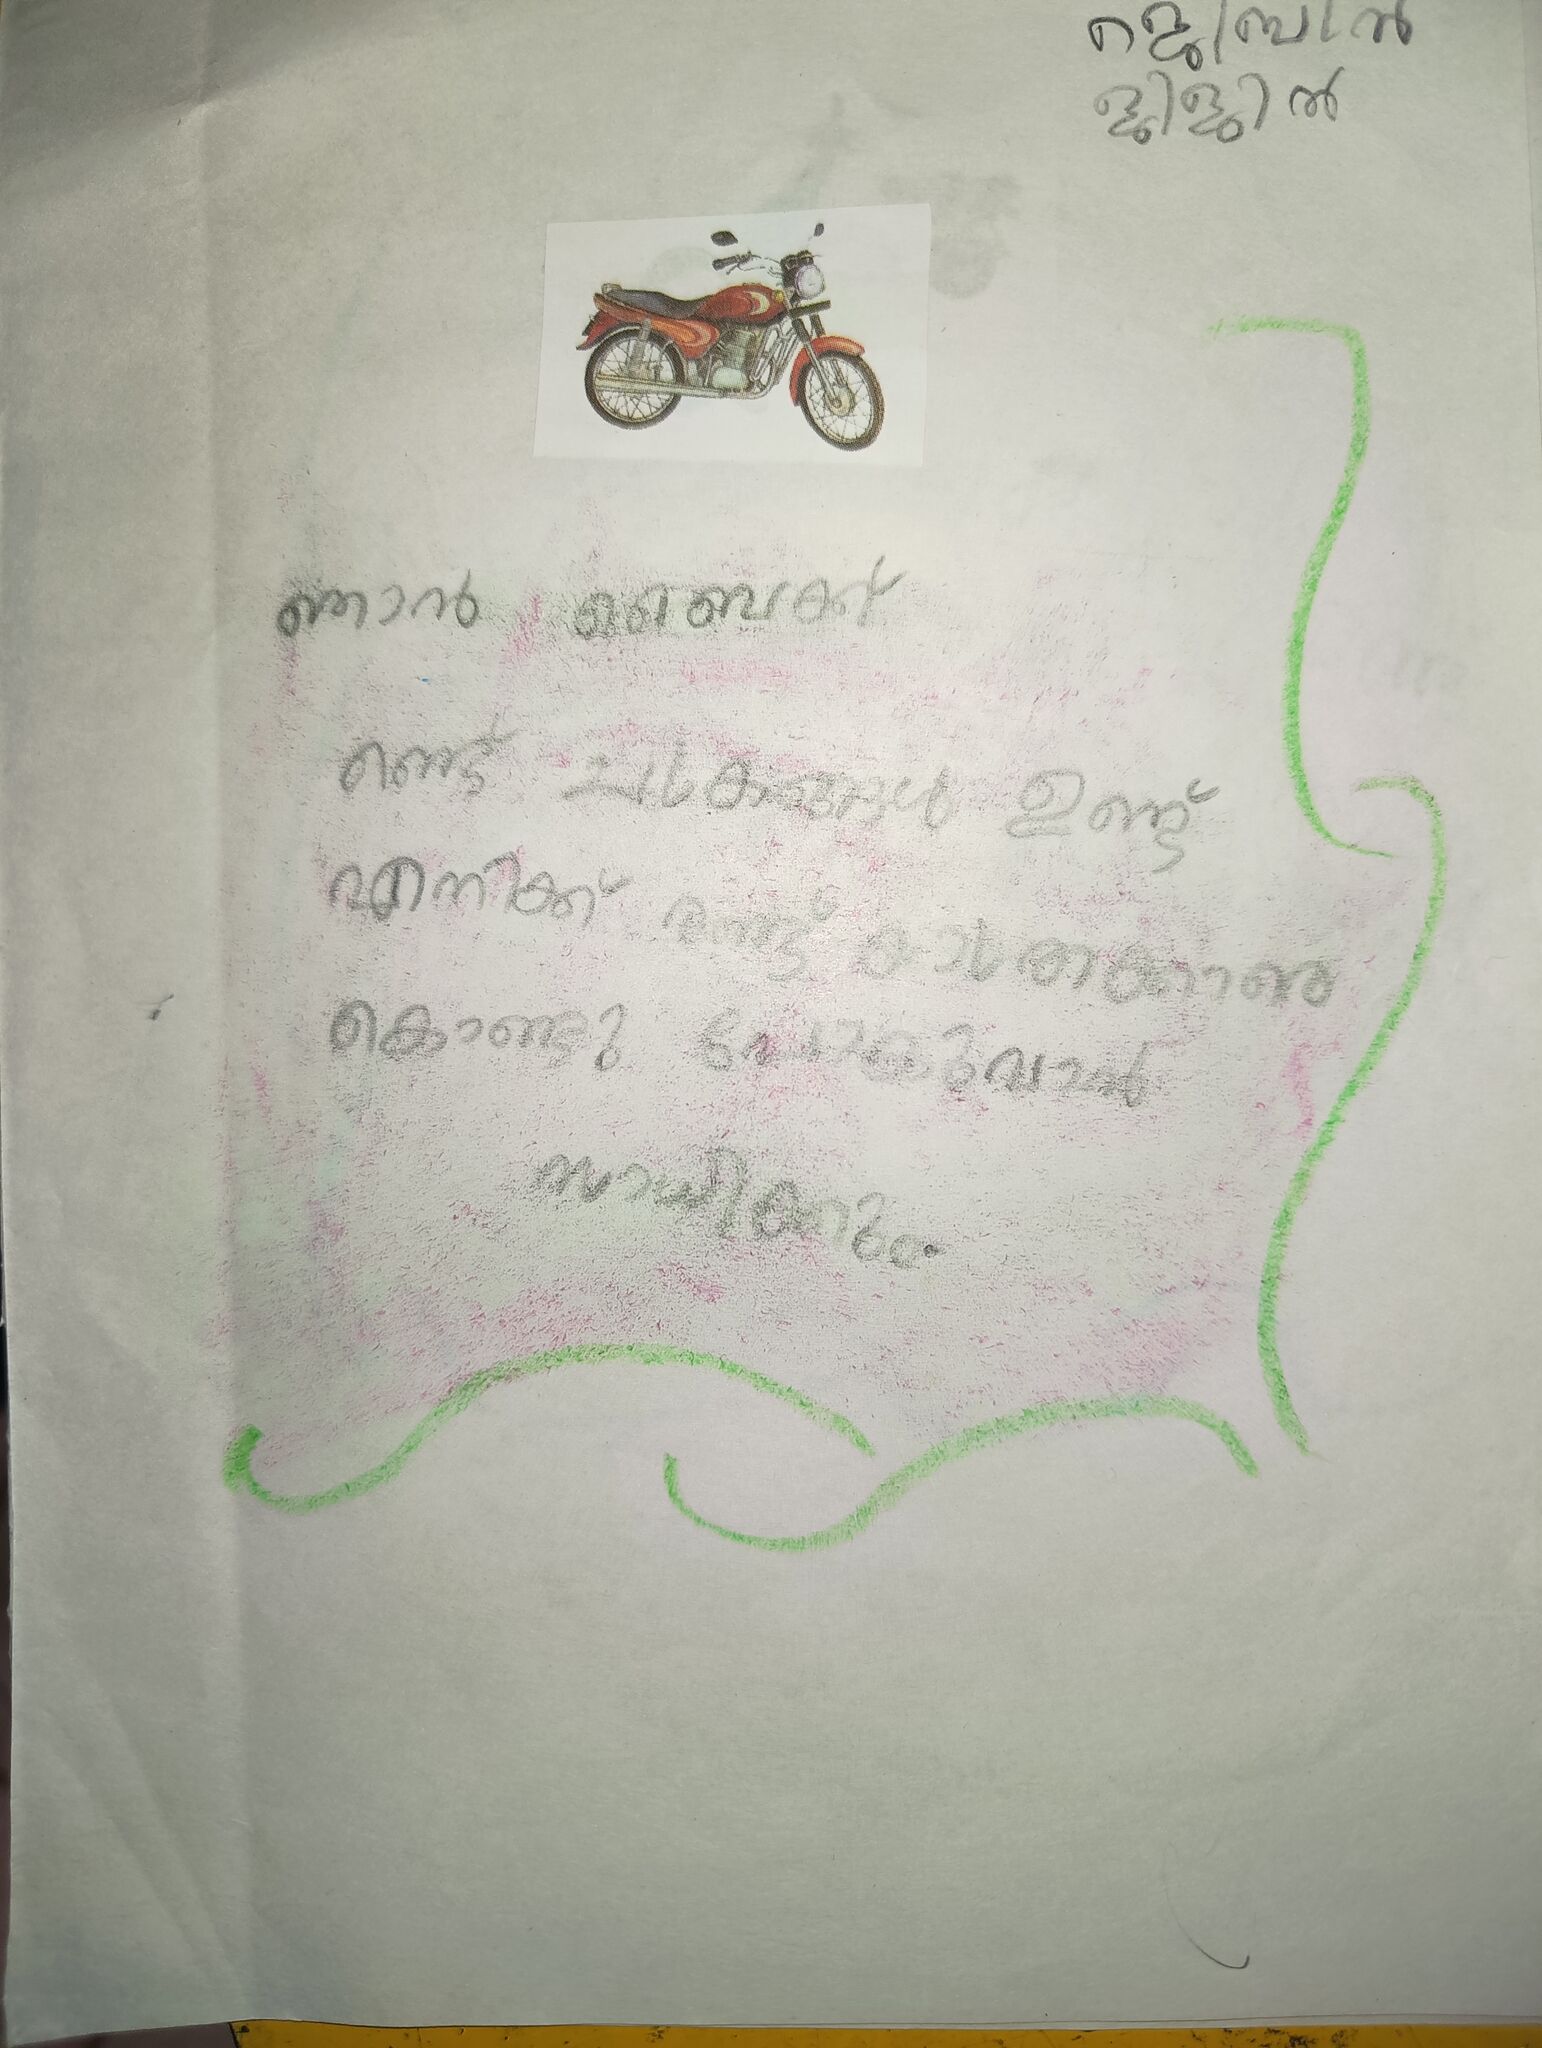 ജെബിൻ
ജിജിൻ
ഞാൻ ബൈക്ക്
ചക്രങ്ങൾ ഉണ്ട്
എനിക്ക് രണ്ട്
കൊണ്ടു പോകുവാൻ
സാധിക്കും